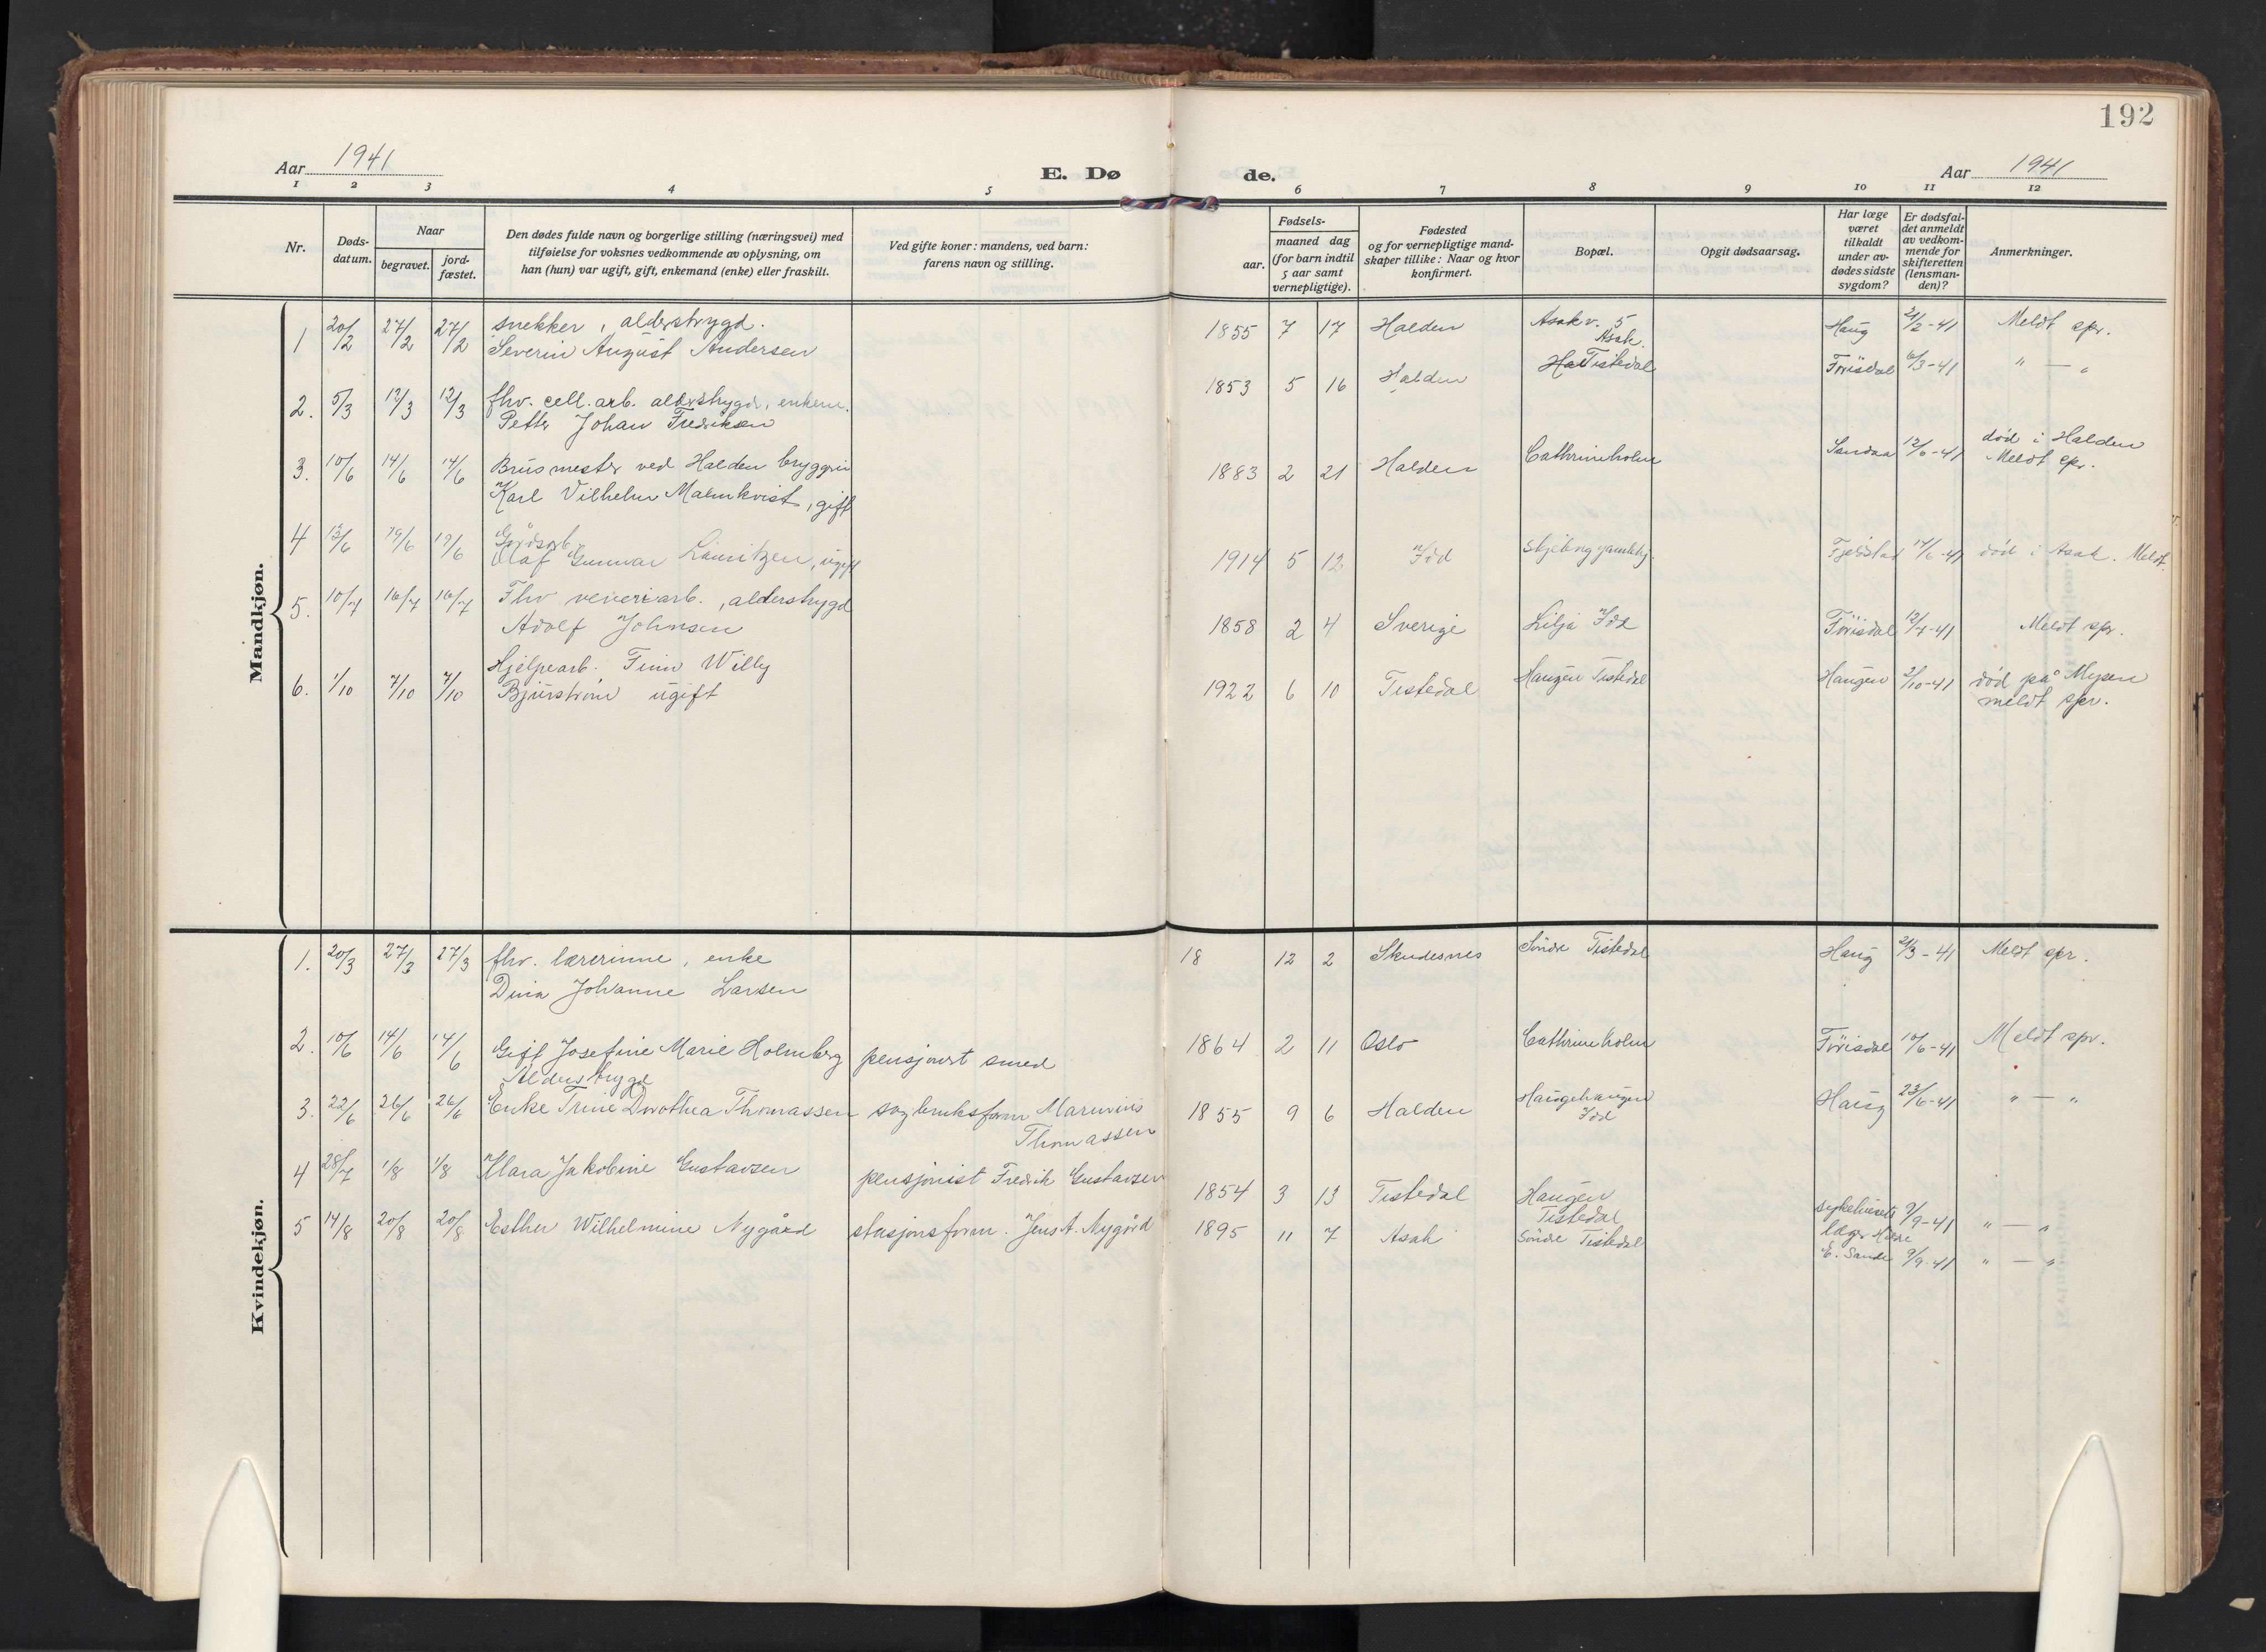 192
Aar 1941
E. Dø
de.
Aar 1941
1 2 3 4 5 6 7 8 9 10 11 12
Nr.
Døds-
datum.
Naar
begravet.
jord-
fæstet.
Den dødes fulde navn og borgerlige stilling (næringsvei) med
tilføielse for voksnes vedkommende av oplysning, om
han (hun) var ugift, gift, enkemand (enke) eller fraskilt.
Ved gifte koner: mandens, ved barn:
farens navn og stilling.
Fødsels-
aar.
maaned dag
(for barn indtil
5 aar samt
vernepligtige).
Fødested
og for vernepligtige mand-
skaper tillike: Naar og hvor
konfirmert.
Bopæl.
Opgit dødsaarsag.
Har læge
været
tilkaldt
under av-
dødes sidste
sygdom?
Er dødsfal-
det anmeldt
av vedkom-
mende for
skifteretten
(lensman-
den)?
Anmerkninger.
Mandkjøn.
1 20/2 27/2 27/2 snekker, alderstrygd.
Severin August Andersen
1855 7 17 Halden Asakv. 5
Asak.
Haug 21/2-41 Meldt spr.
2. 5/3 12/3 12/3 fhv. cell. arb. alderstrygd, enkem.
Petter Johan Fredriksen
1853 5 16 Halden Tistedal Förisdal 6/3-41 " — "
3. 10/6 14/6 14/6 Brusmester ved Halden bryggeri
Karl Vilhelm Malmkvist, gift
1883 2 21 Halden Cathrineholm Sandaa 12/6-41 død i Halden
Meldt spr.
4 13/6 19/6 19/6 Gårdsarb.
Olaf Gunnar Lauritzen, ugift
1914 5 12 Idd 14/6-41 død i Asak. Meldt
5. 10/7 16/7 16/7 Fhv veveriarb., alderstrygd
Adolf Johnsen
1858 2 4 Sverige Lilja Idd Förisdal 12/7-41 Meldt spr.
6. 1/10 7/10 7/10 Hjelpearb. Finn Willy
Bjurstrøm ugift
1922 6 10 Tistedal Haugen Tistedal Haugen 2/10-41 død på Mysen
meldt spr.
Kvindekjøn.
1. 20/3 27/3 27/3 fhv. lærerinne, enke
Dina Johanne Larsen
18 12 2 Skudesnes Søndre Tistedal Haug 21/3-41 Meldt spr.
2. 10/6 14/6 14/6 Gift Josefine Marie Holmberg pensjonert smed
Alderstrygd
1864 2 11 Oslo Cathrineholm Förisdal 10/6-41 Meldt spr.
3. 22/6 26/6 26/6 Enke Trine Dorothea Thomassen sagbruksform
Thomassen
1855 9 6 Halden Haugehaugen
Idd
Haug 23/6-41 " — "
4 28/7 1/8 1/8 Klara Jakobine Gustavsen pensjonist Fredrik Gustavsen
1854 3 13 Tistedal Haugen
Tistedal
sykehusets
9/9-41 " — "
5 14/8 20/8 20/8 Esther Wilhelmine Nygård stasjonsform. Jens A. Nygård
1895 11 7 Asak Søndre Tistedal E. Sande 9/9-41 " — "